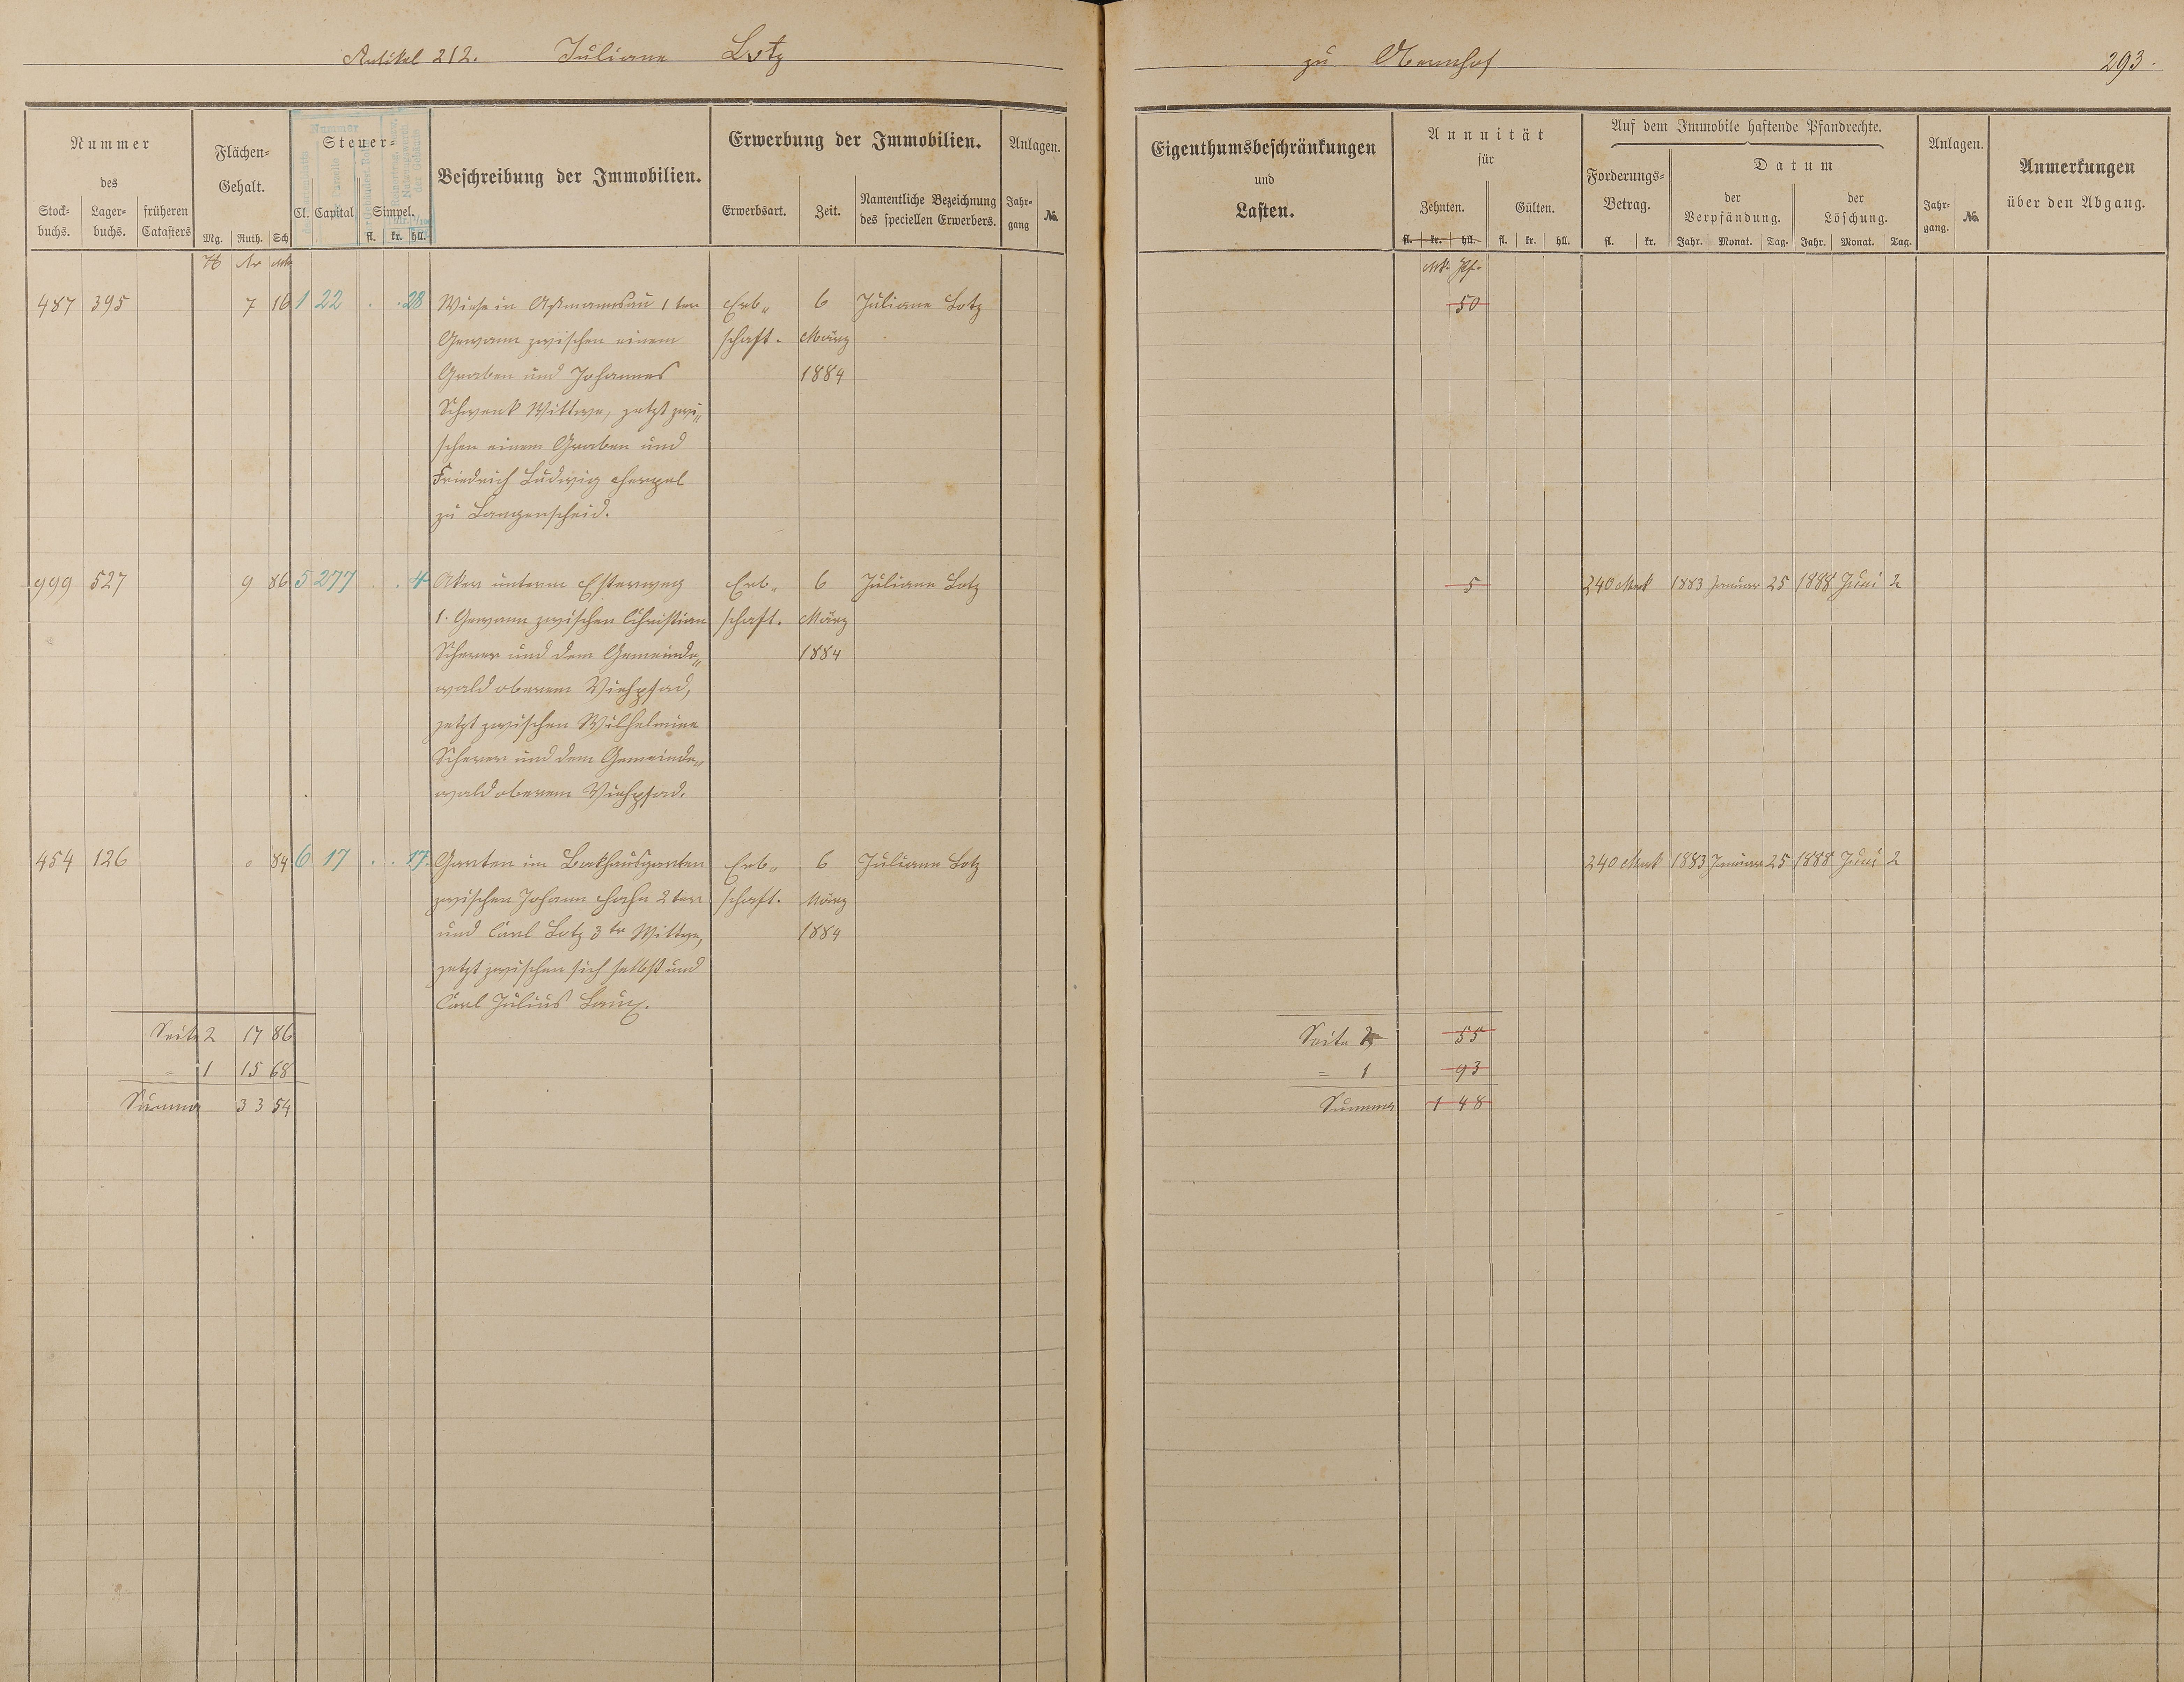 Artikel 212. Juliane Lotz
zu Obernhof 293.
Nummer
des
Stock-
buchs.
Lager-
buchs.
früheren
Catasters
Flächen-
Gehalt.
Mg. Ruth. Sch
Steuer-
Cl. Capital Simpel.
fl. kr. hll.
Beschreibung der Immobilien.
Erwerbung der Immobilien.
Erwerbsart. Zeit.
Namentliche Bezeichnung
des speciellen Erwerbers.
Anlagen.
Jahr-
gang
No.
Eigenthumsbeschränkungen
und
Lasten.
Annuität
für
Zehnten. Gülten.
fl. kr. hll. fl. kr. hll.
Auf dem Immobile haftende Pfandrechte.
Forderungs-
Betrag.
fl. kr.
Datum
der
Verpfändung.
der
Löschung.
Jahr. Monat. Tag. Jahr. Monat. Tag.
Anlagen.
Jahr-
gang.
No.
Anmerkungen
über den Abgang.
H Ar
Mk. Pf.
487 395 7 16 1 22 . . 28 Wiese in Aßmannsau 1ter Erb„ 6 Juliane Lotz 50
Gewann zwischen einem schaft. März
Graben und Johannes 1884
Schwenk Wittwe, jetzt zwi„
schen einem Graben und
Friedrich Ludwig
zu Langenscheid.
999 527 9 86 5 277 . . 4 Aker unterm Esterweg Erb„ 6 Juliane Lotz 5 240 Mark 1883 Januar 25 1888 Juni 2
1. Gewann zwischen Christian schaft. März
Scherer und dem Gemeinde„ 1884
wald oberem Viehpfad,
jetzt zwischen Wilhelmine
Scherer und dem Gemeinde„
wald oberem Viehpfad.
454 126 0 84 6 17 . . 17 Garten im Bakhausgarten Erb„ 6 Juliane Lotz 240 Mark 1883 Januar 25 1888 Juni 2
zwischen Johann Hahn 2ter schaft. März
und Carl Lotz 3tr Wittwe, 1884
jetzt zwischen sich selbst und
Carl Julius Laux.
Seite 2 17 86
= 1 15 68
Summa 33 54
Seite 2 55
= 1 93
Summa 1 48